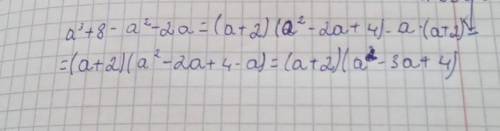 a³+8-a²-2a=(a+2)(a²-2a+4)-a·(a+2)=
=(a+2)(a²-2a+4-a)=(a+2)(a²-3a+4)